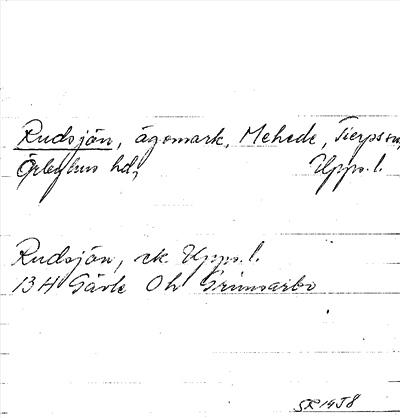 Rudsjön, ägomark, Mehede, Tierps sn,
Örbyhus hd, Upps. l.
Rudsjön, ek Upps. l.
13H Gävle 0h Grinnsarbo
SR 1958